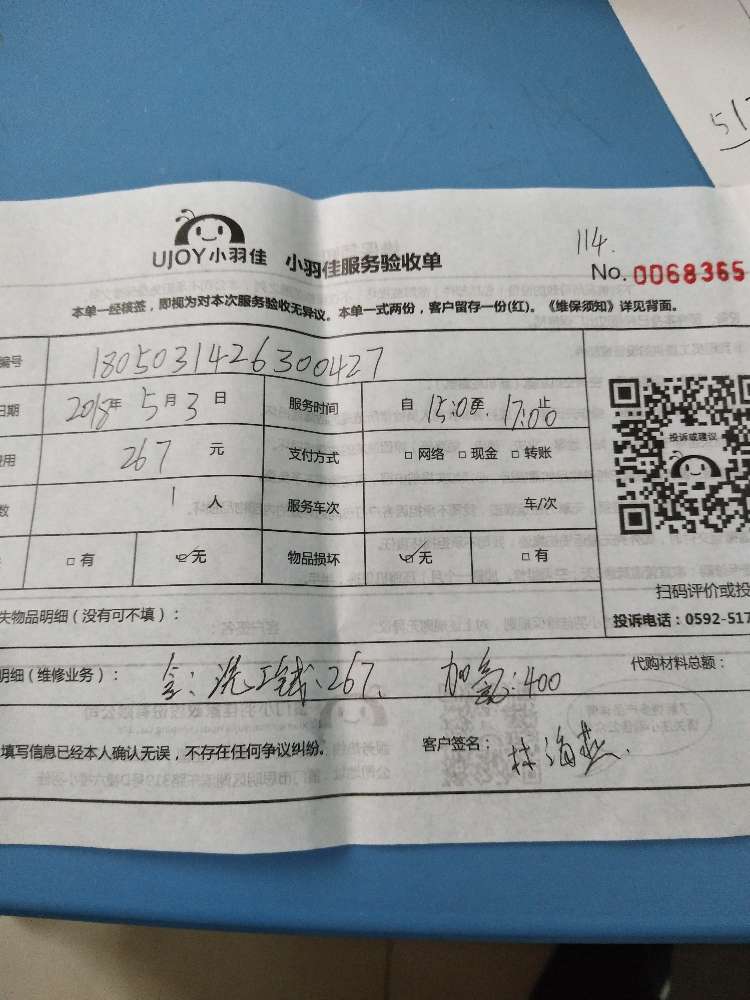 51
114.
UJOY小羽佳 小羽佳服务验收单
No. 0068365
本单一经核签，即视为对本次服务验收无异议。本单一式两份，客户留存一份(红)。《维保须知》详见背面。
编号 1805031426300427
日期 2018年 5月 3日 服务时间 自 15:00至 17:00止
费用 267 元 支付方式 □网络 □现金 □转账
数 1 人 服务车次 车/次
□有 ☑无 物品损坏 ☑无 □有
投诉或建议
扫码评价或投
投诉电话：0592-517
失物品明细（没有可不填）：
明细（维修业务）： 洗 267. 加氟:400 代购材料总额：
填写信息已经本人确认无误，不存在任何争议纠纷。 客户签名： 林海燕.